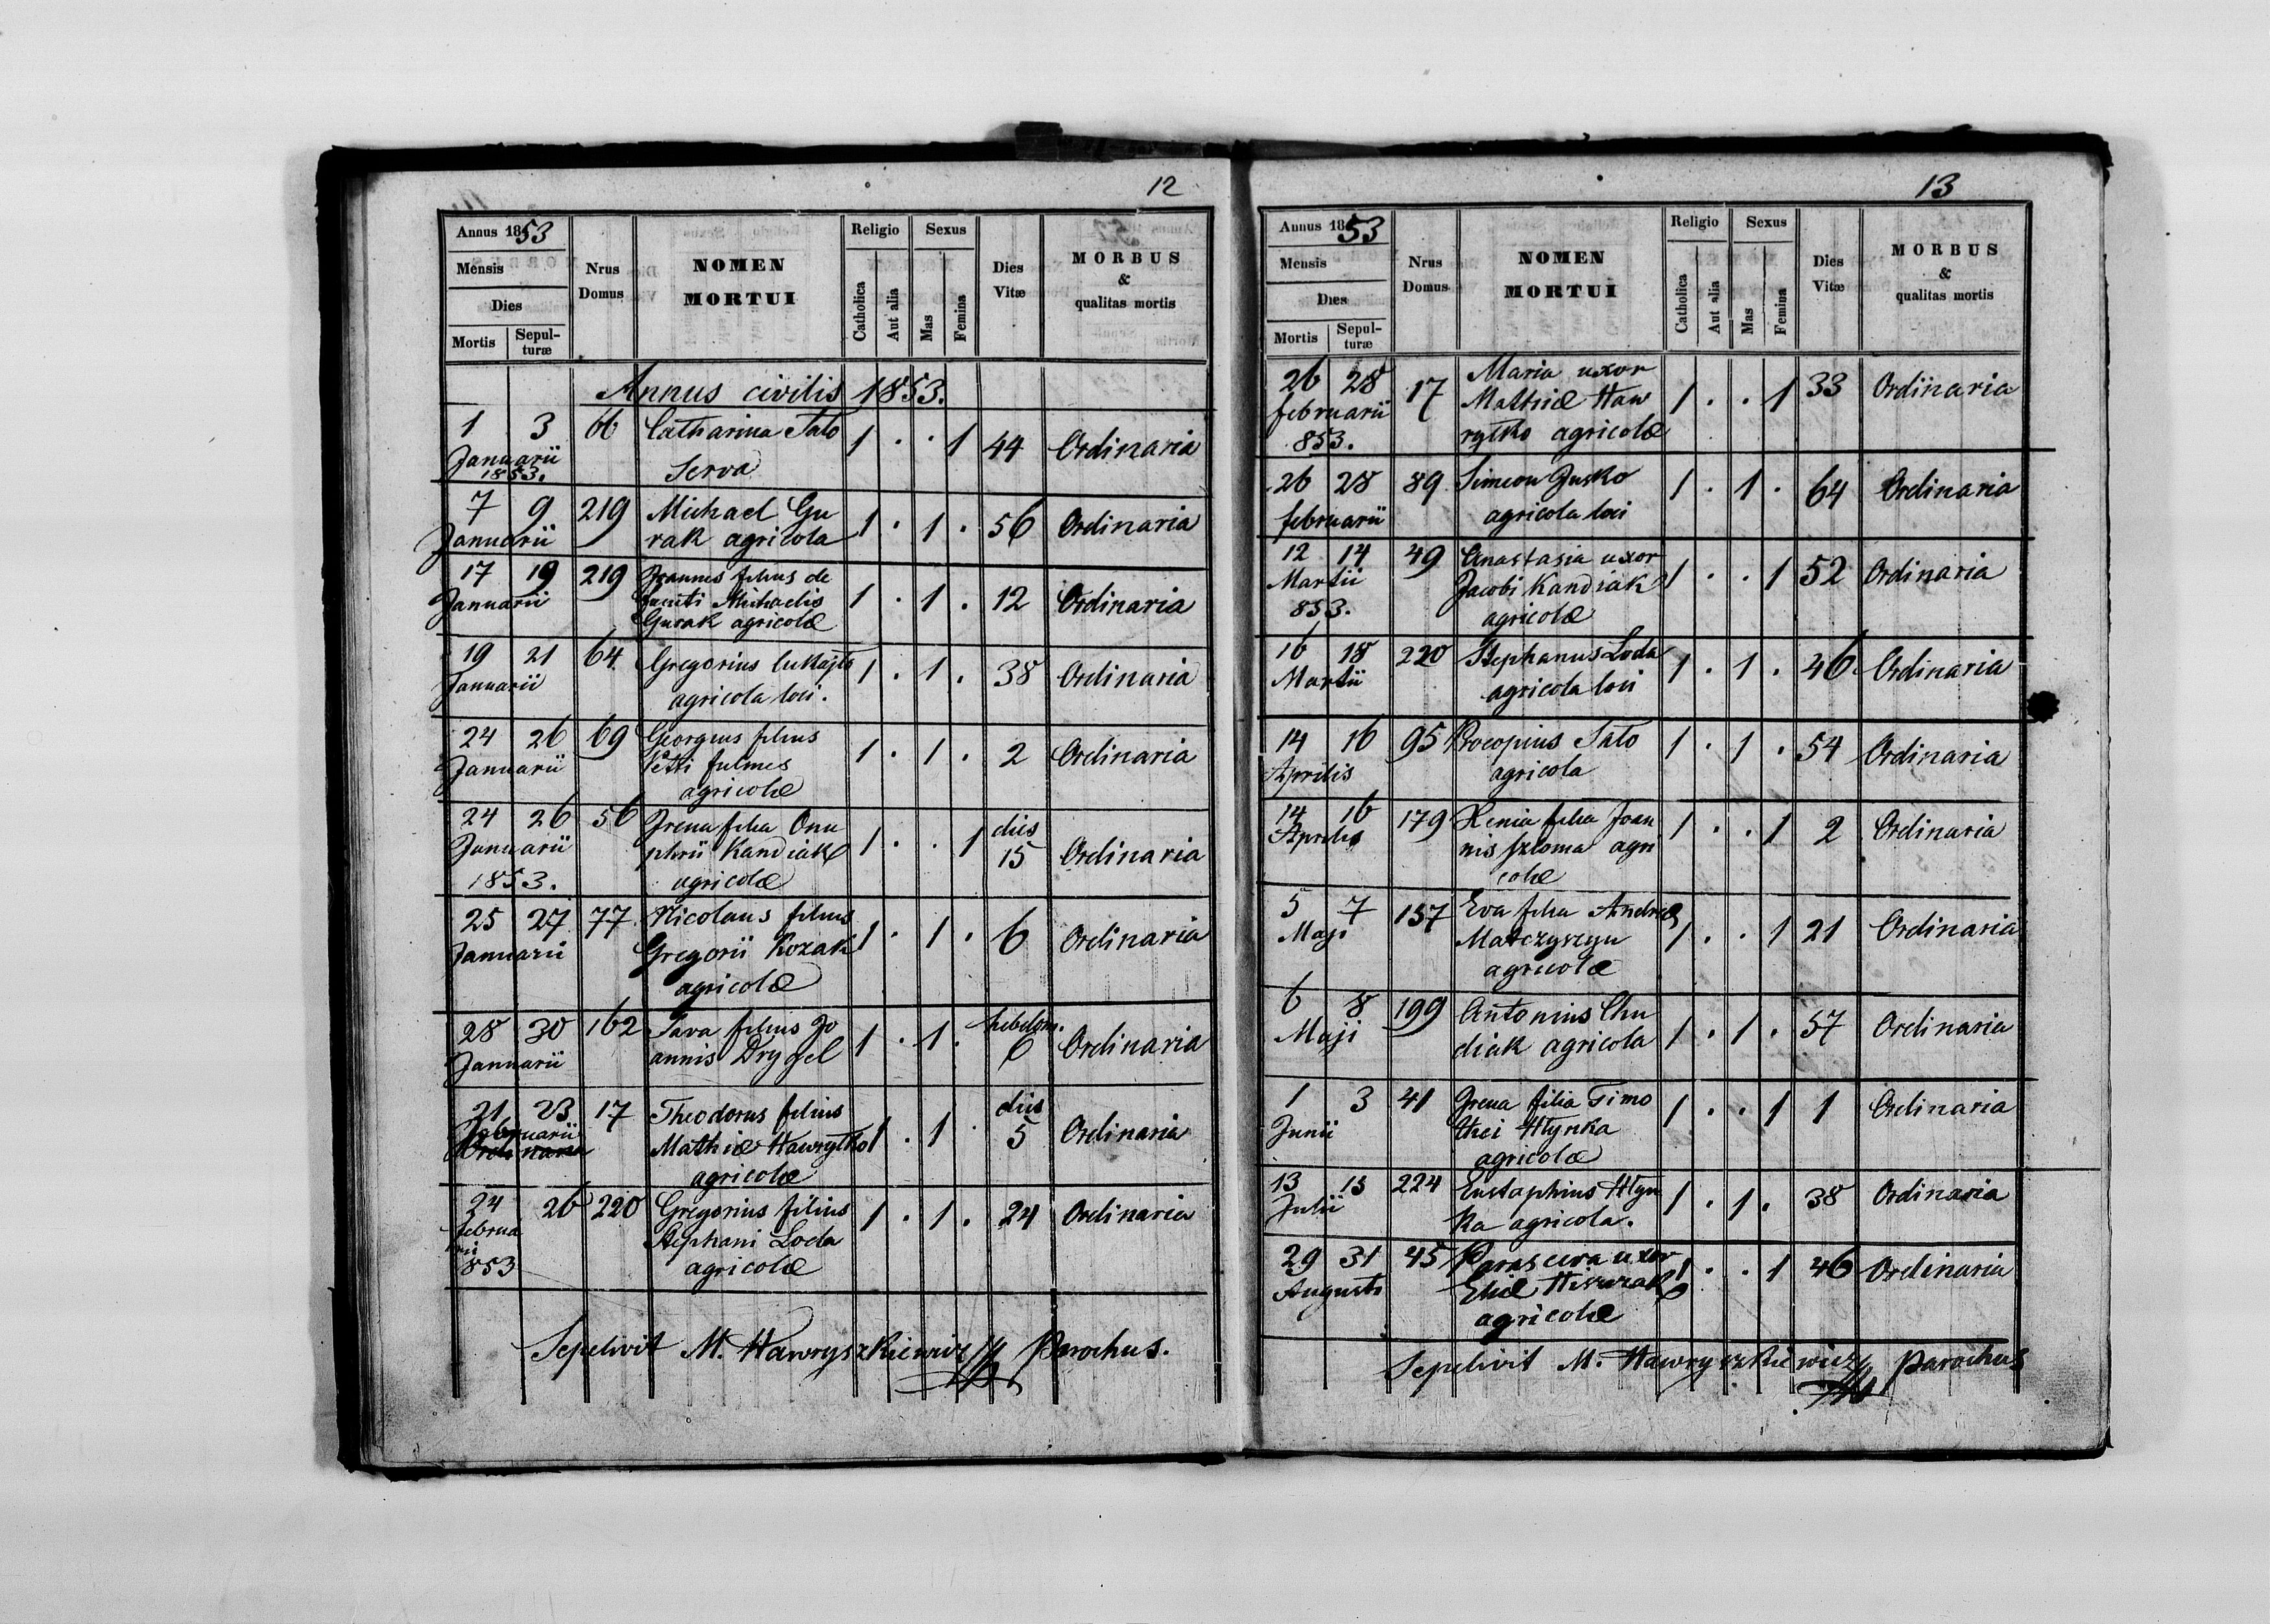 12
Annus 1853
Mensis
Dies
Mortis Sepul-
turæ
Nrus
Domus
NOMEN
MORTUI
Religio
Catholica
Aut alia
Sexus
Mas
Femina
Dies
Vitæ
MORBUS
&
qualitas mortis
Annus civilis 1853.
1 3 66 Catharina Tato 1 . . 1 44 Ordinaria
Januarii
1853. Serva
7 9 219 Michael Gu 1 . 1 . 56 Ordinaria
Januarii rak agricola
17 19 219 Joannes filius de
Januarii functi Michaelis 1 . 1 . 12 Ordinaria
Gurak agricolæ
19 21 64 Gregorius 1 . 1 . 38 Ordinaria
Januarii agricola loci.
24 26 69 Georgius filius 1 . 1 . 2 Ordinaria
Januarii Petri
agricolæ
24 26 56 Irena filia Onu dies
Januarii phrii Kandiak 1 . . 1 15 Ordinaria
1853. agricolæ
25 27 77 Nicolaus filius
Januarii Gregorii Kozak 1 . 1 . 6 Ordinaria
agricolæ
28 30 162 Sava filius Jo hebdom.
Januarii annis 1 . 1 . 6 Ordinaria
21 23 17 Theodorus filius dies
februarii Mathiæ Hawrytko 1 . 1 . 5 Ordinaria
agricolæ
24 26 220 Gregorius filius 1 . 1 . 24 Ordinaria
februa Stephani Loda
rii
853 agricolæ
Sepelivit M. Hawryszkiewicz Parochus.
13
Annus 1853
Mensis
Dies
Mortis Sepul-
turæ
Nrus
Domus
NOMEN
MORTUI
Religio
Catholica
Aut alia
Sexus
Mas
Femina
Dies
Vitæ
MORBUS
&
qualitas mortis
26 28 17 Maria uxor 33 Ordinaria
februarii Mathiæ Haw 1 . . 1
853. rytko agricolæ
26 28 89 Simeon Jusko 1 . 1 . 64 Ordinaria
februarii agricola loci
12 14 49 Anastasia uxor
Martii Jacobi Kandiak 1 . . 1 52 Ordinaria
853. agricolæ
16 18 220 Stephanus Loda 1 . 1 . 46 Ordinaria
Martii agricola loci
14 16 95 Procopius Tato 1 . 1 . 54 Ordinaria
Aprilis agricola
14 16 179 Xenia filia Joan 1 . . 1 2 Ordinaria
Aprilis nis Szloma agri
colæ
5 7 157 Eva filia Andreæ
Maji Matczyszyn 1 . . 1 21 Ordinaria
agricolæ
6 8 199 Antonius Chu
Maji diak agricola 1 . 1 . 57 Ordinaria
1 3 41 Irena filia Timo 1 . . 1 1 Ordinaria
Junii thei Hlynka
agricolæ
13 15 224 Eustaphius Hlyn 1 . 1 . 38 Ordinaria
Julii ka agricola.
29 31 45 Parasceva uxor 1 . . 1 46 Ordinaria
Augusti Eliæ
agricolæ
Sepelivit M. Hawryszkiewicz Parochus